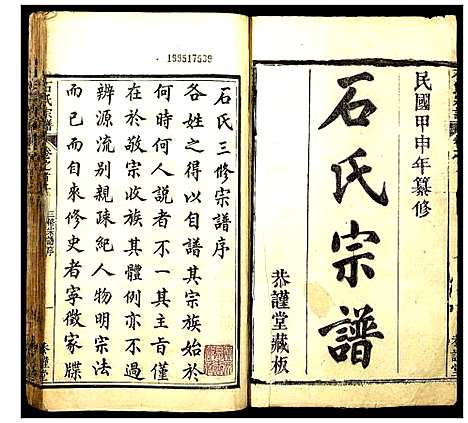 民國甲申年纂修
石氏宗譜
恭謹堂藏板
155517539
石氏三修宗譜序
各姓之得以自譜其宗族始於
何時何人說者不一其主旨僅
在於敬宗收族其體例亦不過
辨源流別親疎紀人物明宗法
而已而自來修史者寧徵家牒
石氏宗譜
三修宗譜序
恭謹堂